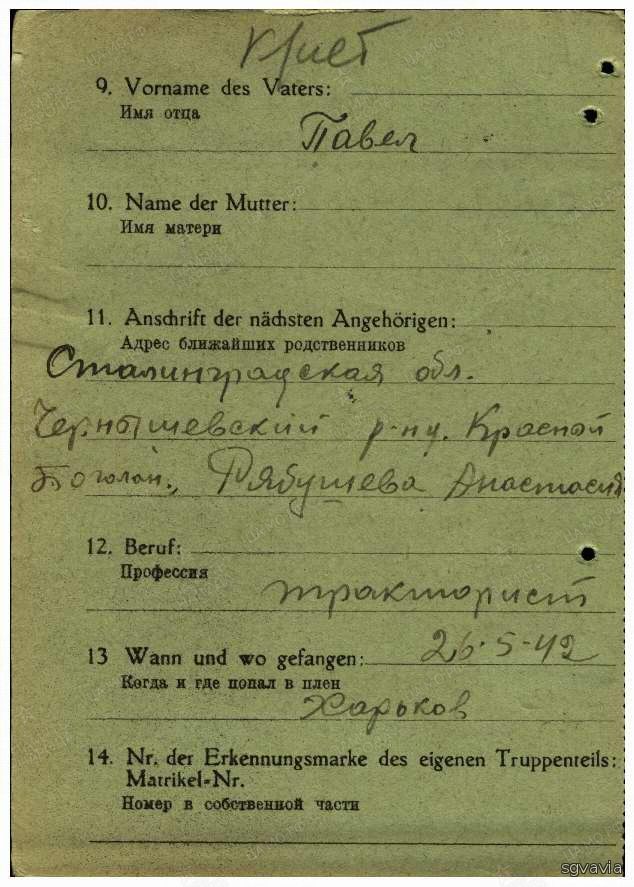 9. Vorname des Vaters:
Имя отца
Павел
10. Name der Mutter:
Имя матери
11. Anschrift der nächsten Angehörigen:
Адрес ближайших родственников
Сталинградская обл.
Чернышевский р-н Красной
Рябушева Анастасия
12. Beruf:
Профессия
тракторист
13 Wann und wo gefangen:
26·5-42
Когда и где попал в плен
Харьков
14. Nr. der Erkennungsmarke des eigenen Truppenteils:
Matrikel-Nr.
Номер в собственной части
sgvavia